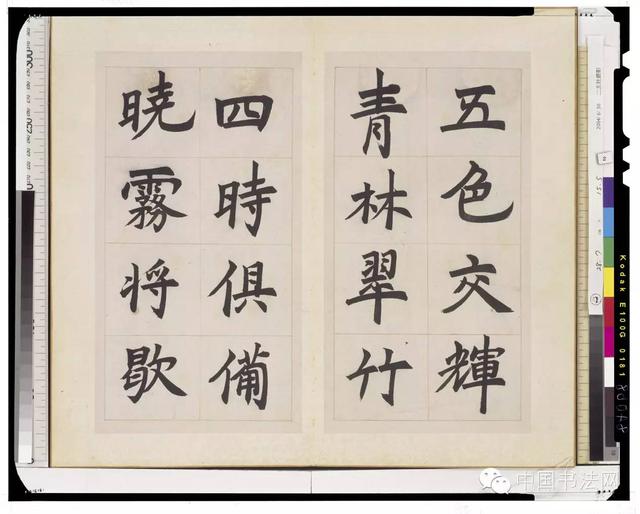 五色交輝
青林翠竹
四時俱備
暁霧将歇
Kodak E100G 0181
中国书法网